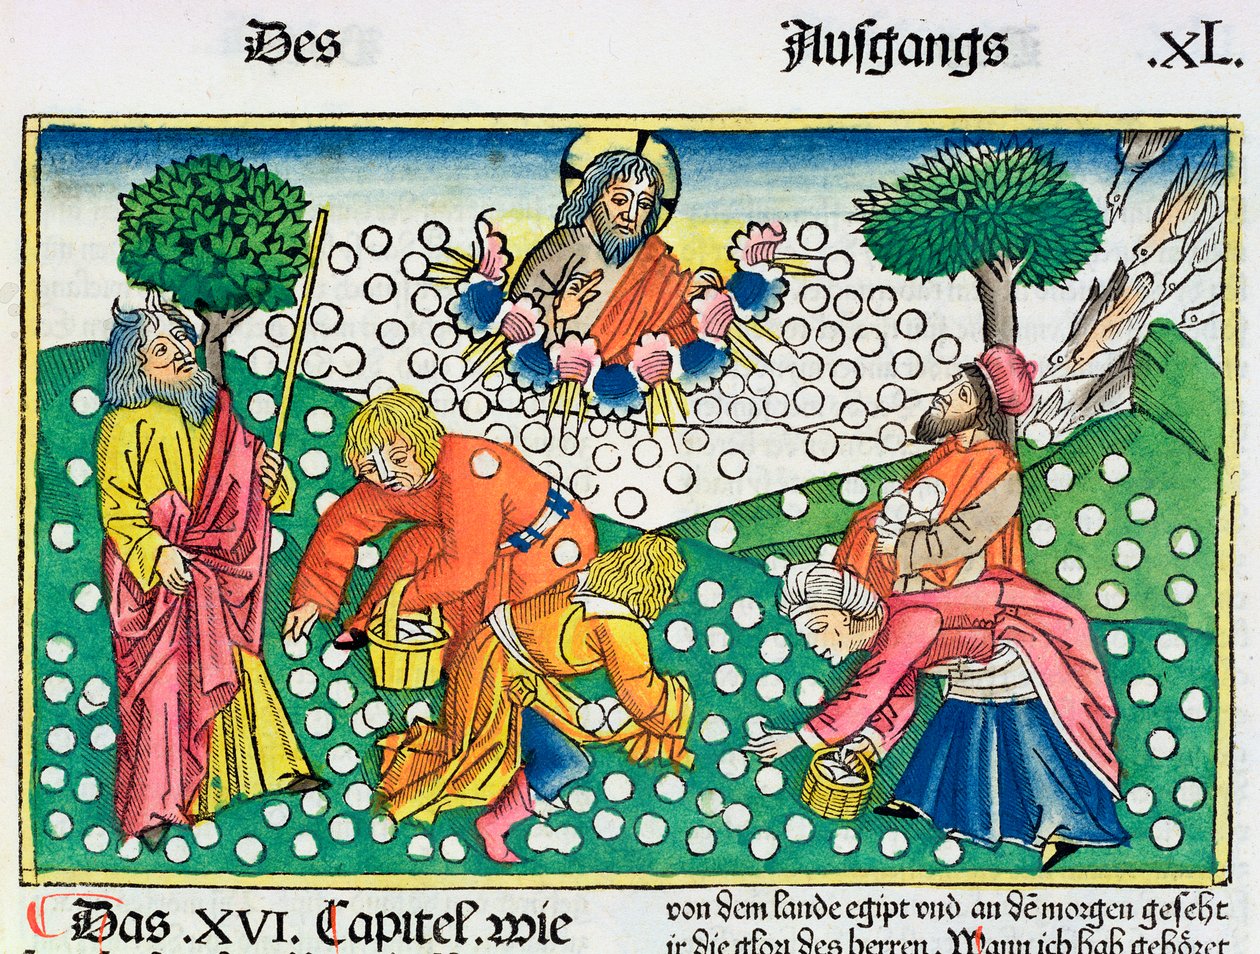 Des Auſgangs .XL.
Das .XVI. Capitel. wie
von dem lande egipt vnd an dē morgen geſeht
ir die glori des herren. Wann ich hab gehöꝛet